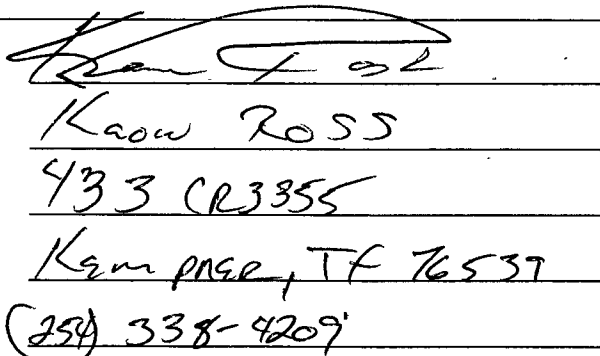 Kaow Ross
433 CR3355
Kempner, TX 76539
(254) 338-4209